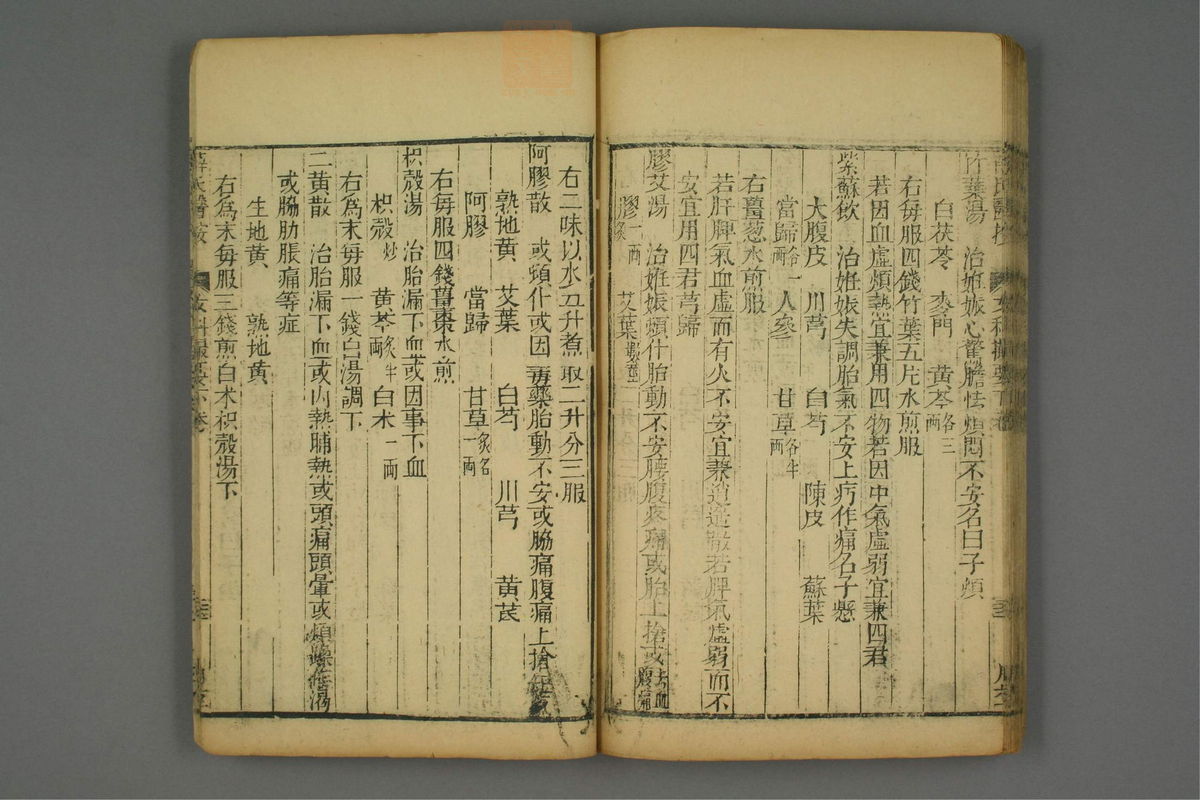 竹葉湯　治姙娠心驚膽怯煩悶不安名曰子煩
白茯苓　麥門　黃芩各三兩
右每服四錢竹葉五片水煎服
若因血虛煩熱宜兼用四物若因中氣虛弱宜兼四君
紫蘇飲　治姙娠失調胎氣不安上疞作痛名子懸
大腹皮　川芎　白芍　陳皮　蘇葉
當歸各一兩　人參　甘草各半兩
右薑葱水煎服
若肝脾氣血虛而有火不安宜兼逍遙散若脾氣虛弱而不
安宜用四君芎歸
膠艾湯　治姙娠頓仆胎動不安腰腹疼痛或胎上搶或去血腹痛
膠一兩炙　艾葉
右二味以水五升煮取二升分三服
阿膠散　或頓仆或因毒藥胎動不安或脇痛腹痛上搶
熟地黃　艾葉　白芍　川芎　黃芪
阿膠　當歸　甘草炙各一兩
右每服四錢薑棗水煎
枳殼湯　治胎漏下血或因事下血
枳殼炒　黃芩炙半兩　白朮一兩
右爲末每服一錢白湯調下
二黃散　治胎漏下血或內熱晡熱或頭痛頭暈或煩躁作渴
或脇肋脹痛等症
生地黃　熟地黃
右爲末每服三錢煎白朮枳殼湯下
薛氏醫按　女科撮要下卷